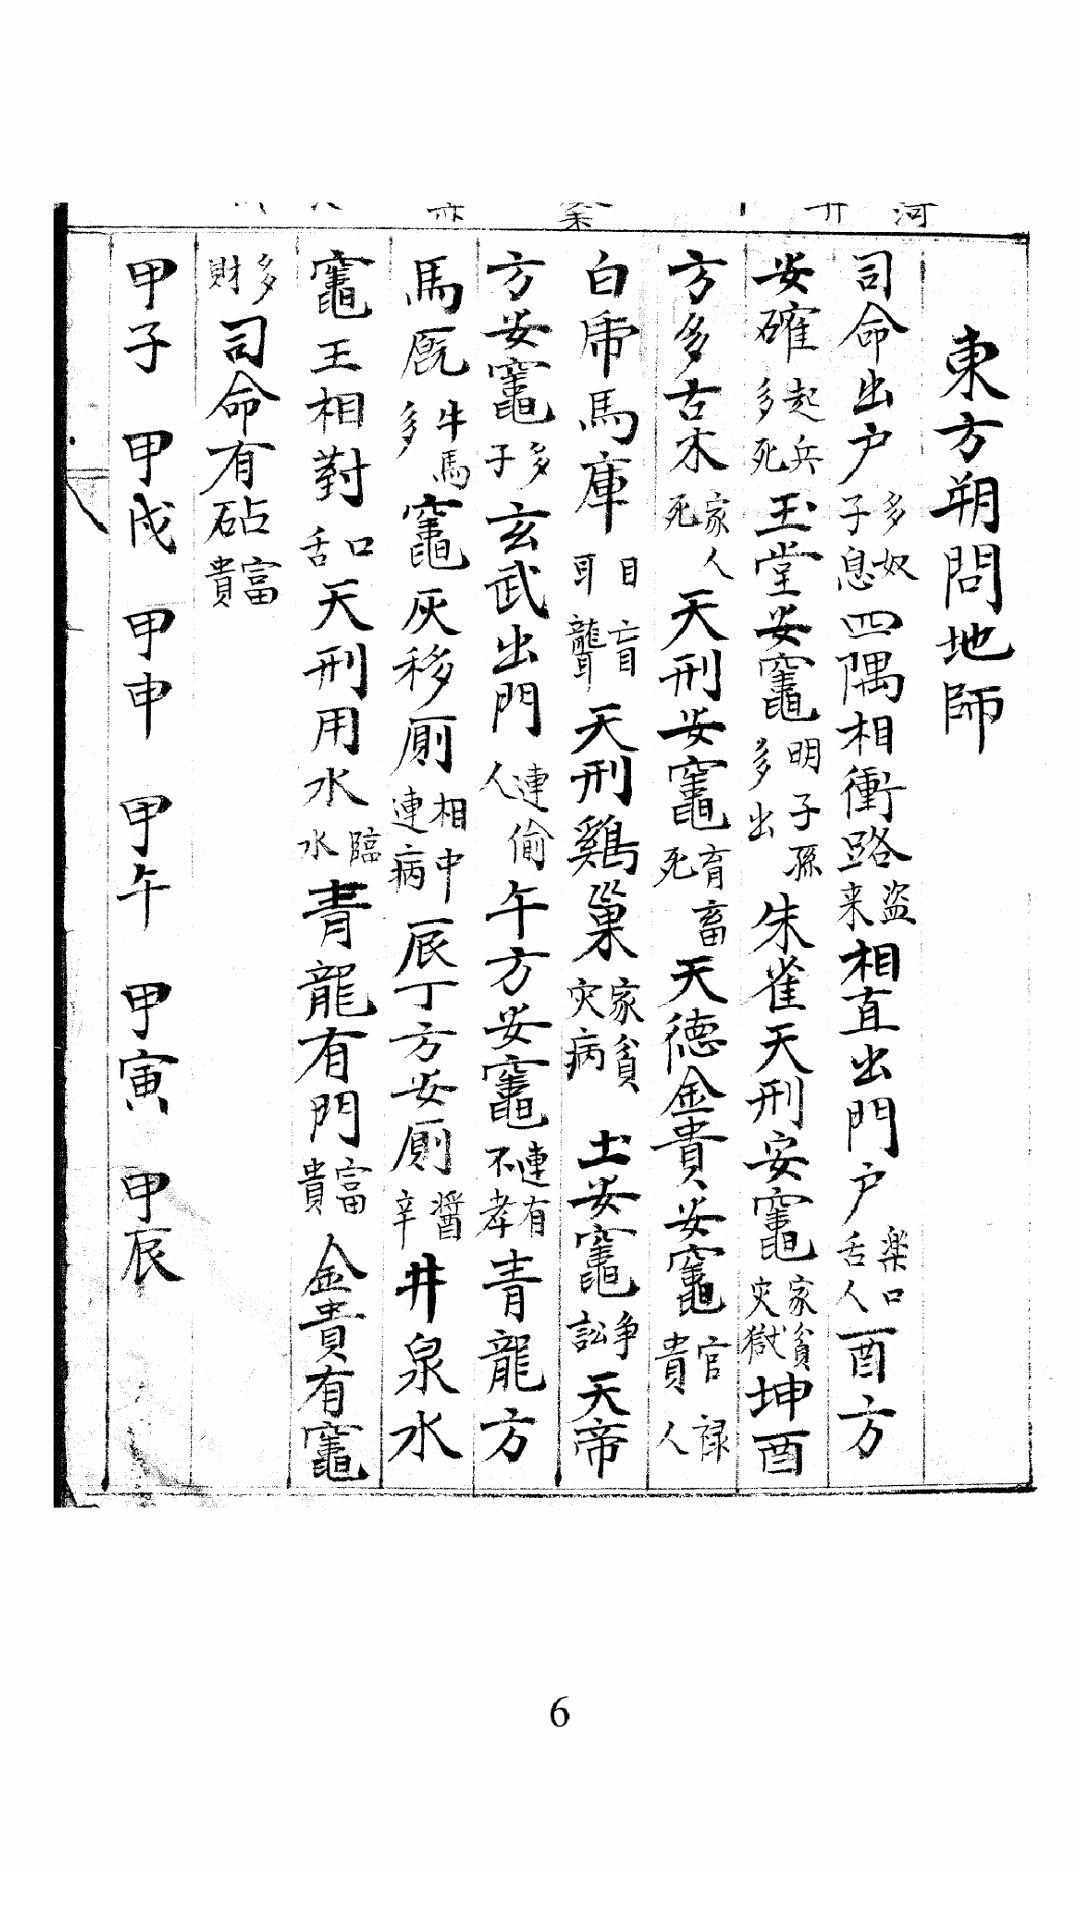 東方朔問地師
司命出户多奴子息四隅相衝路盗来相直出門户楽口舌人酉方
安確起兵多死玉堂安竈明子孫多出朱雀天刑安竈家貧灾獄坤酉
方多古木家人死天刑安竈育畜死天德金貴安竈官禄貴人
白帍馬庫目盲耳聾天刑鷄巢家貧灾病土安竈争訟天帝
方安竈多子玄武出門連偷人午方安竈連有不孝青龍方
馬厩牛馬多竈灰移厠相中連病辰丁方安厠醬辛井泉水
竈王相對口舌天刑用水臨水青龍有門富貴金貴有竈
多財司命有砧富貴
甲子 甲戌 甲申 甲午 甲寅 甲辰
6